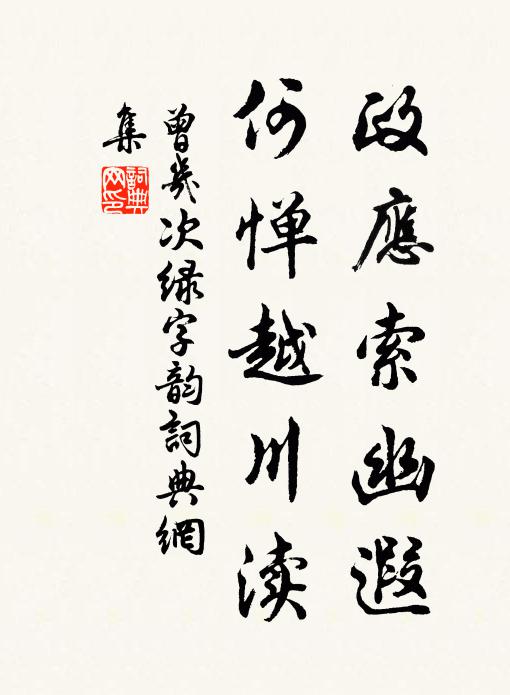 政應索幽遐
何惮越川渎
曾幾次緑字韵詞典網
集
詞典网印